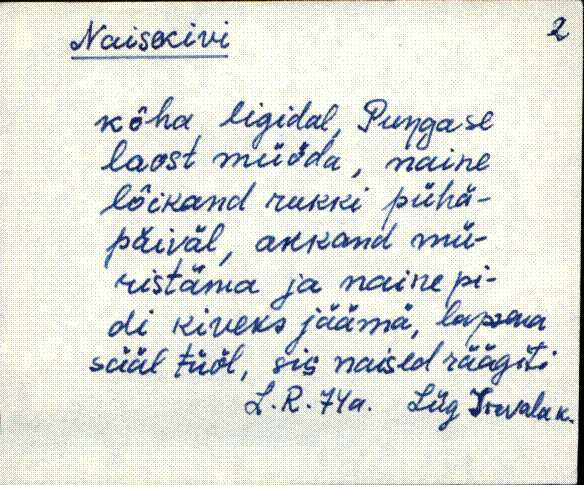 Naisekivi 2
kôha ligidal, Puŋgase
laost müöda, naine
lôikand rukki pühä-
päiväl, akkand mü-
ristäma ja naine pi-
di kiveks jäämä, lapsena
sääl tüöl, sis naised räägiti
L. R. 74a. Lüg Irvala k.